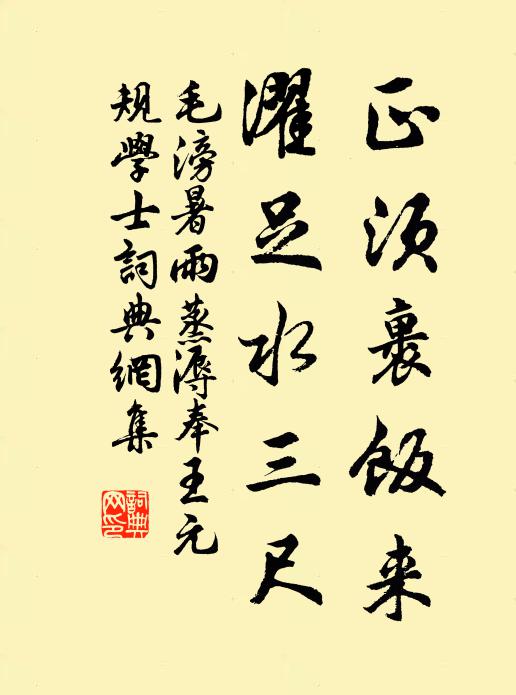 正須裹飯来
濯足水三尺
毛滂暑雨蒸溽奉王元
規學士詞典網集
詞典网印